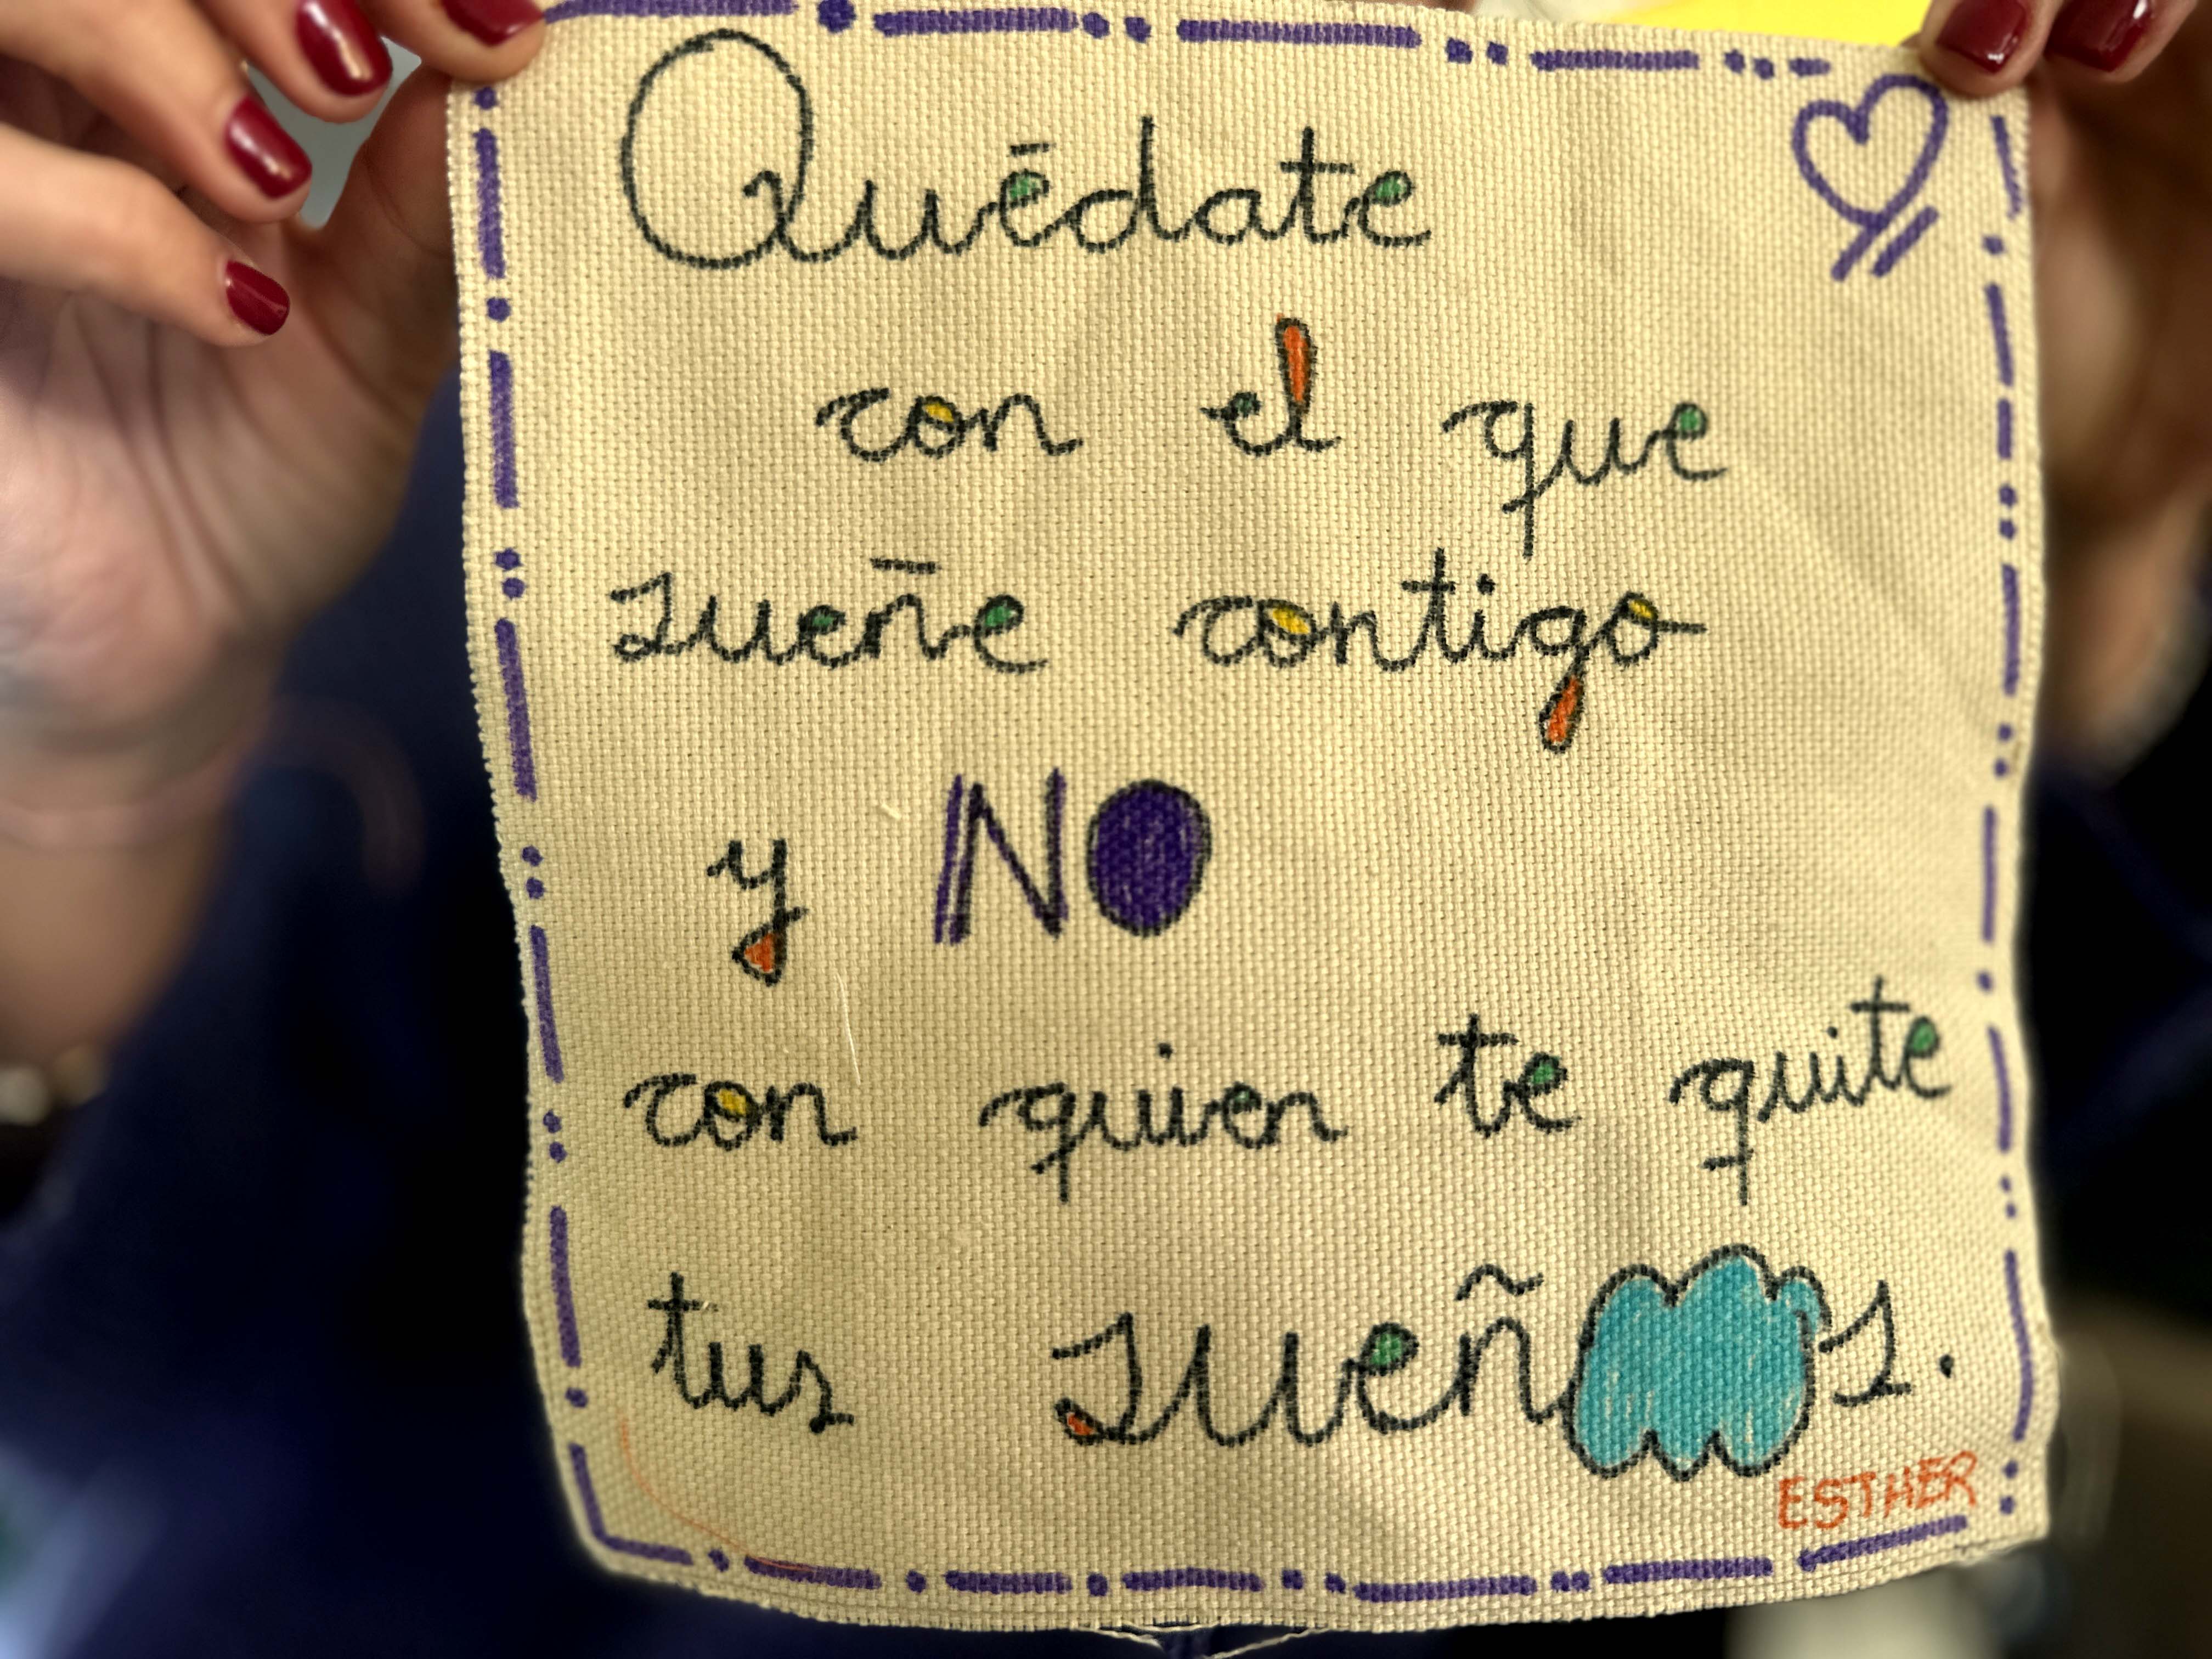 Quédate
con el que
sueñe contigo
y NO
con quien te quite
tus sueños.
ESTHER